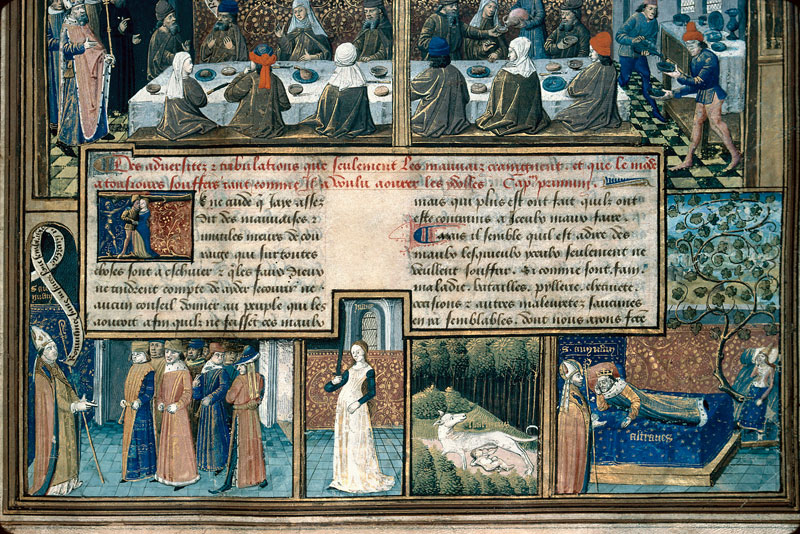 Des adversitez & tribulations que seulement les mauvais craingnent. et que le mode
a tousiours souffers tant comme il a voulu aourer les ydoles. Cap. primum.
ne cuide q iaye assez
dit des mauuaises &
inutiles meurs de cou
rage qui sur toutes
choses sont a eschiuer & q les faux dieux
ne tindrent compte de aider secourir ne
aucun conseil donner au peuple qui les
aouroit afin quilz ne
mais qui plus est ont fait quilz ont
este contrains a iceulx maulx faire.
Mais il semble quil est a dire des
maulx lesquelx iceulx seulement ne
veullent souffrir. Si comme sont. fam
maladie. batailles. pillerie. chetiuete
occasions & autres maleurtez
semblables. dont nous auons